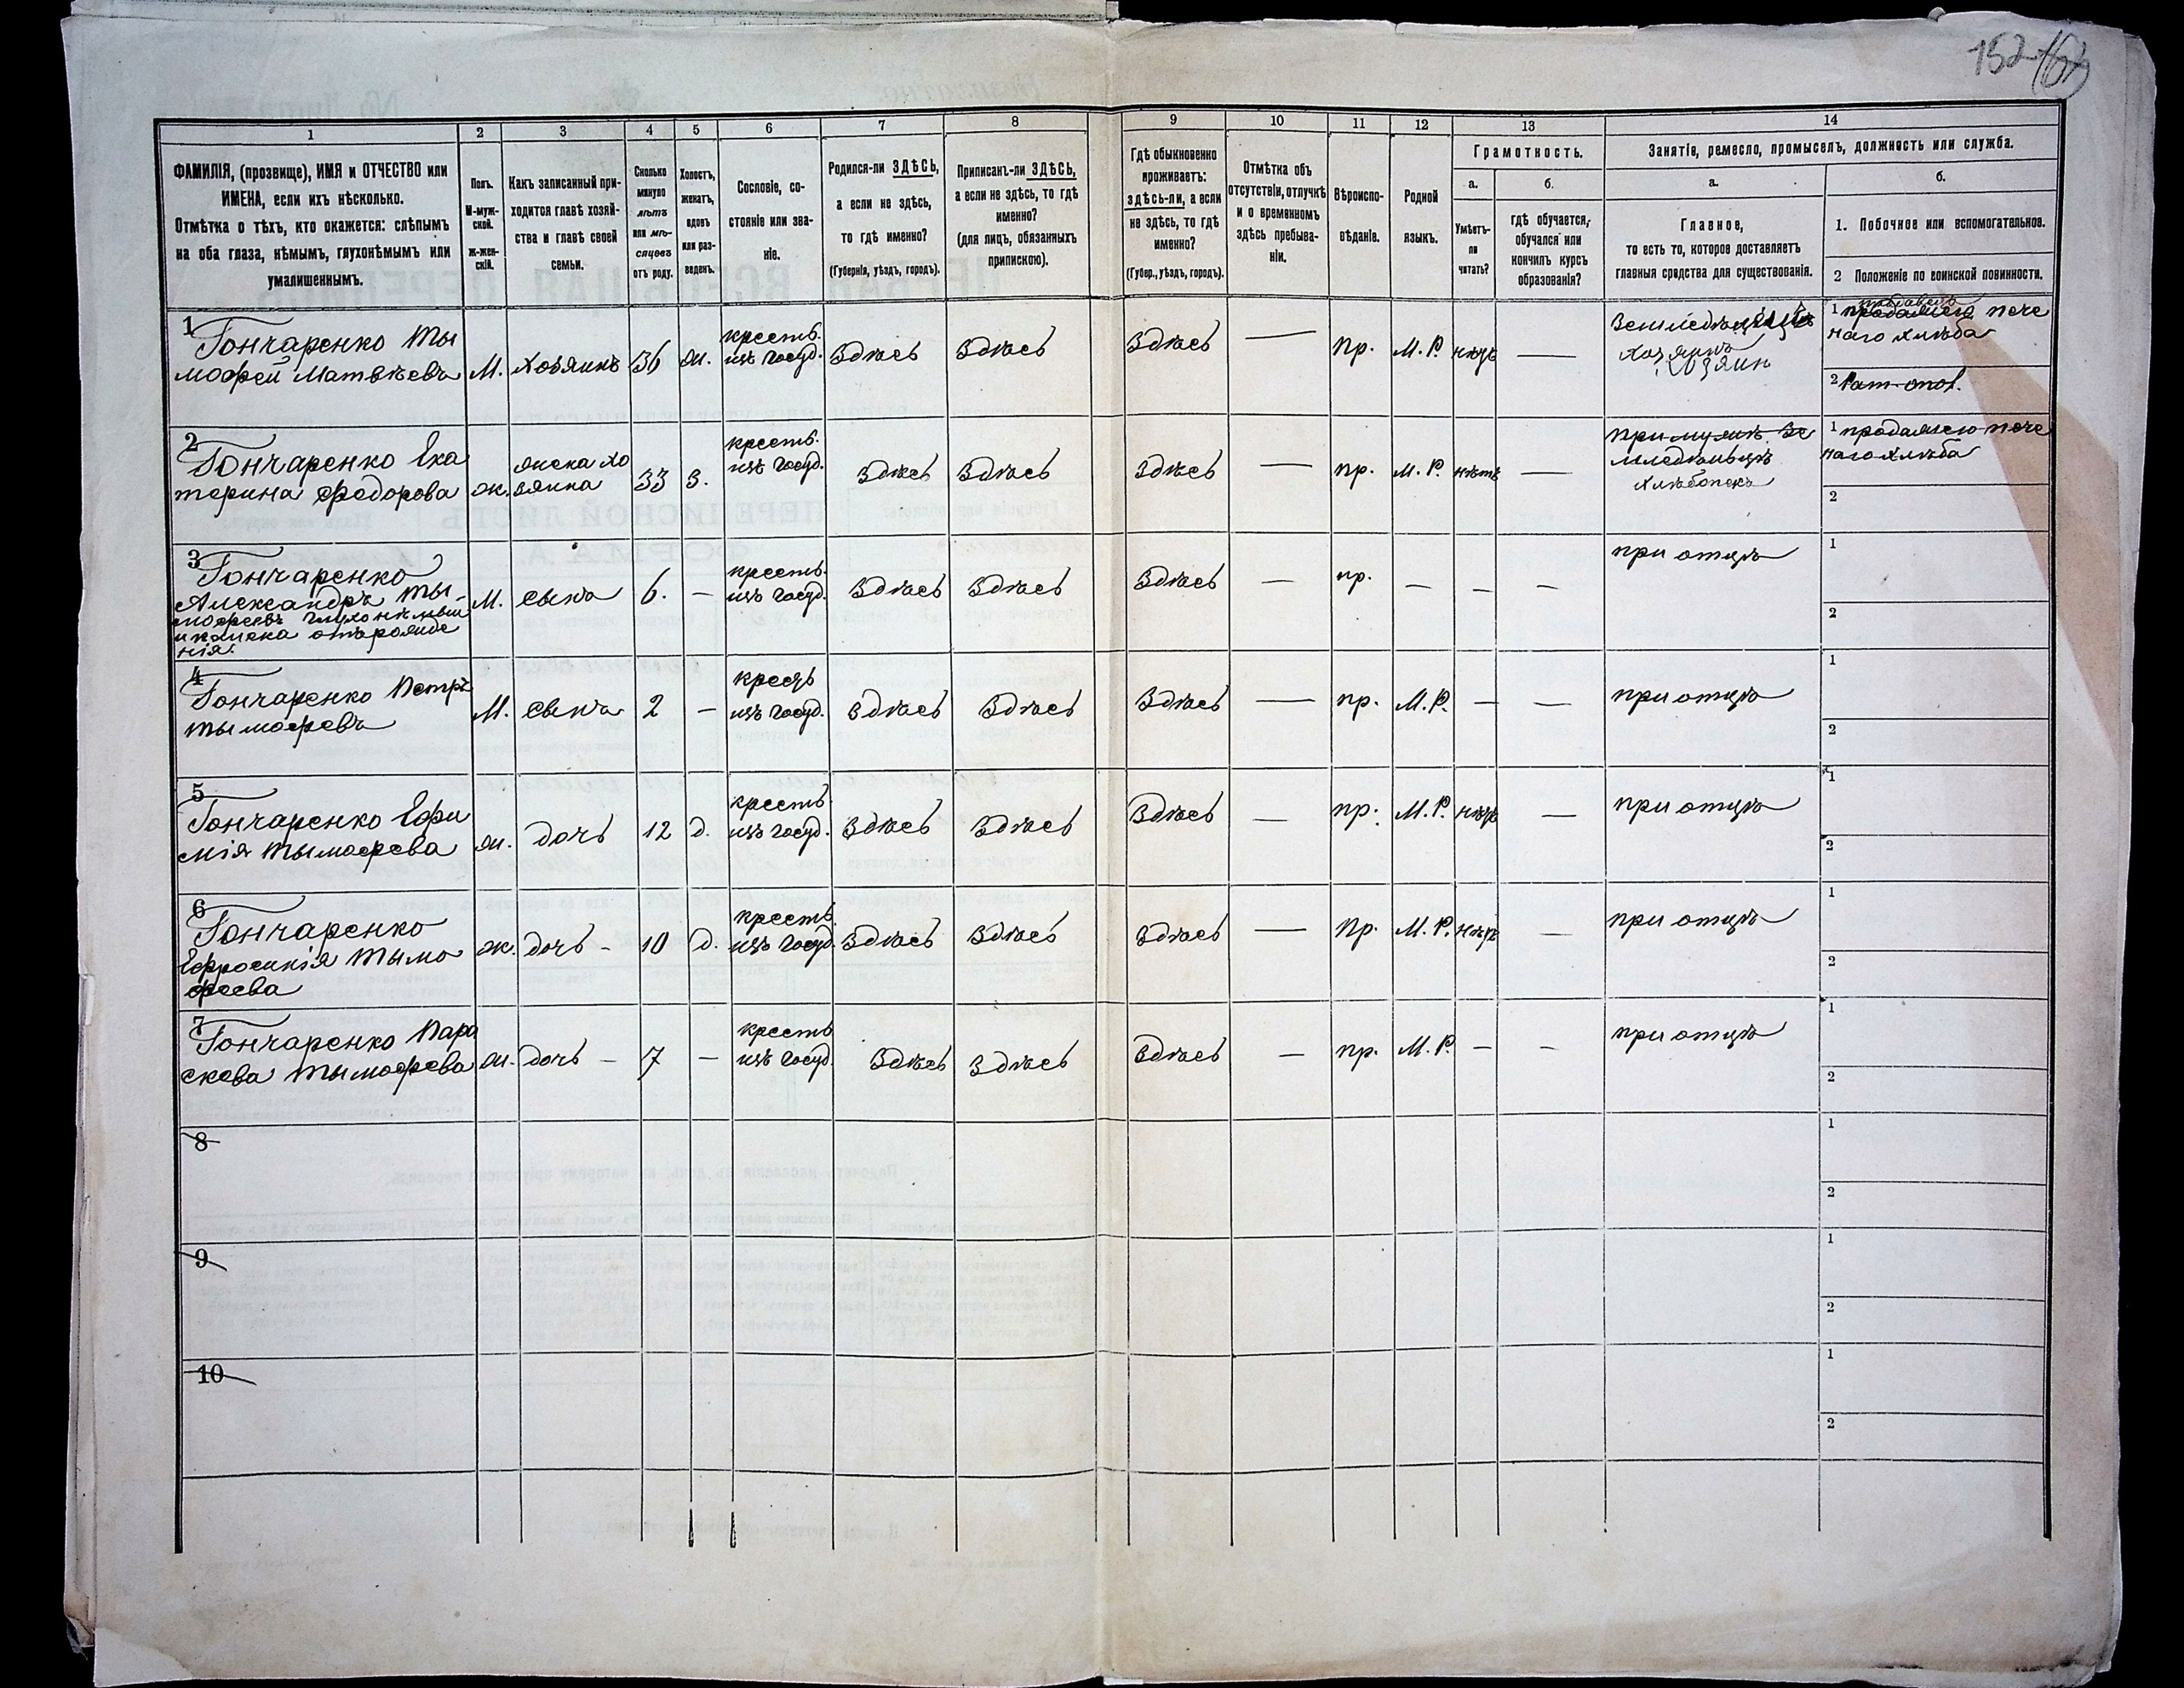 152
1 2 3 4 5 6 7 8 9 10 11 12 13 14
ФАМИЛІЯ, (прозвище), ИМЯ и ОТЧЕСТВО или
ИМЕНА, если ихъ нѣсколько.
Отмѣтка о тѣхъ, кто окажется: слѣпымъ
на оба глаза, нѣмымъ, глухонѣмымъ или
умалишеннымъ.
Полъ.
М-муж-
ской.
Ж-жен-
скій.
Какъ записанный при-
ходится главѣ хозяй-
ства и главѣ своей
семьи.
Сколько
минуло
лѣтъ
или мѣ-
сяцевъ
отъ роду.
Холостъ,
женатъ,
вдовъ
или раз-
веденъ.
Сословіе, со-
стояніе или зва-
ніе.
Родился-ли ЗДѢСЬ,
а если не здѣсь,
то гдѣ именно?
(Губернія, уѣздъ, городъ).
Приписанъ-ли ЗДѢСЬ,
а если не здѣсь, то гдѣ
именно?
(для лицъ, обязанныхъ
припискою).
Гдѣ обыкновенно
проживаетъ:
здѣсь-ли, а если
не здѣсь, то гдѣ
именно?
(Губер., уѣздъ, городъ).
Отмѣтка объ
отсутствіи, отлучкѣ
и о временномъ
здѣсь пребыва-
ніи.
Вѣроиспо-
вѣданіе.
Родной
языкъ.
Грамотность.
а.
Умѣетъ-
ли
читать?
б.
гдѣ обучается,
обучался или
кончилъ курсъ
образованія?
Занятіе, ремесло, промыселъ, должность или служба.
а.
Главное,
то есть то, которое доставляетъ
главныя средства для существованія.
б.
1. Побочное или вспомогательное.
2 Положеніе по воинской повинности.
1
Гончаренко Ты
мофей Матвѣевъ
М.
Хозяинъ
36
ж.
крестъ.
изъ госуд.
Здѣсь
Здѣсь
Здѣсь
—
пр.
М. Р.
нѣтъ
—
хозяинъ
хозяин
1 продажею пече
наго хлѣба
2 Рат. опол.
2
Гончаренко Ека
терина Федорова
ж.
жена хо
зяина
33
З.
крестъ.
изъ госуд.
Здѣсь
Здѣсь
Здѣсь
—
пр.
М. Р.
нѣтъ
—
при мужѣ зе
мледѣльцѣ
хлѣбопекъ
1 продажею пече
наго хлѣба
2
3
Гончаренко
Александръ Ты-
мофеевъ глухонѣмый
и калека отъ рожде
нія.
М.
сынъ
6.
—
крестъ.
изъ госуд.
Здѣсь
Здѣсь
Здѣсь
—
пр.
—
—
—
при отцѣ
1
2
4
Гончаренко Петръ
Тымофевъ
М.
сынъ
2
—
крестъ
изъ госуд.
Здѣсь
Здѣсь
Здѣсь
—
пр.
М. Р.
—
—
при отцѣ
1
2
5
Гончаренко Ефи
мія Тымофева
ж.
дочь
12
д.
крестъ
изъ госуд.
Здѣсь
Здѣсь
Здѣсь
—
пр.
М. Р.
нѣтъ
—
при отцѣ
1
2
6
Гончаренко
Ефросинія Тымо
феева
ж.
дочь -
10
д.
крестъ
изъ госуд.
Здѣсь
Здѣсь
Здѣсь
—
пр.
М. Р.
нѣтъ
—
при отцѣ
1
2
7
Гончаренко Пара
скева Тымофева
ж.
дочь —
7
—
крестъ
изъ госуд.
Здѣсь
Здѣсь
Здѣсь
—
пр.
М. Р.
—
—
при отцѣ
1
2
8
1
2
9
1
2
10
1
2